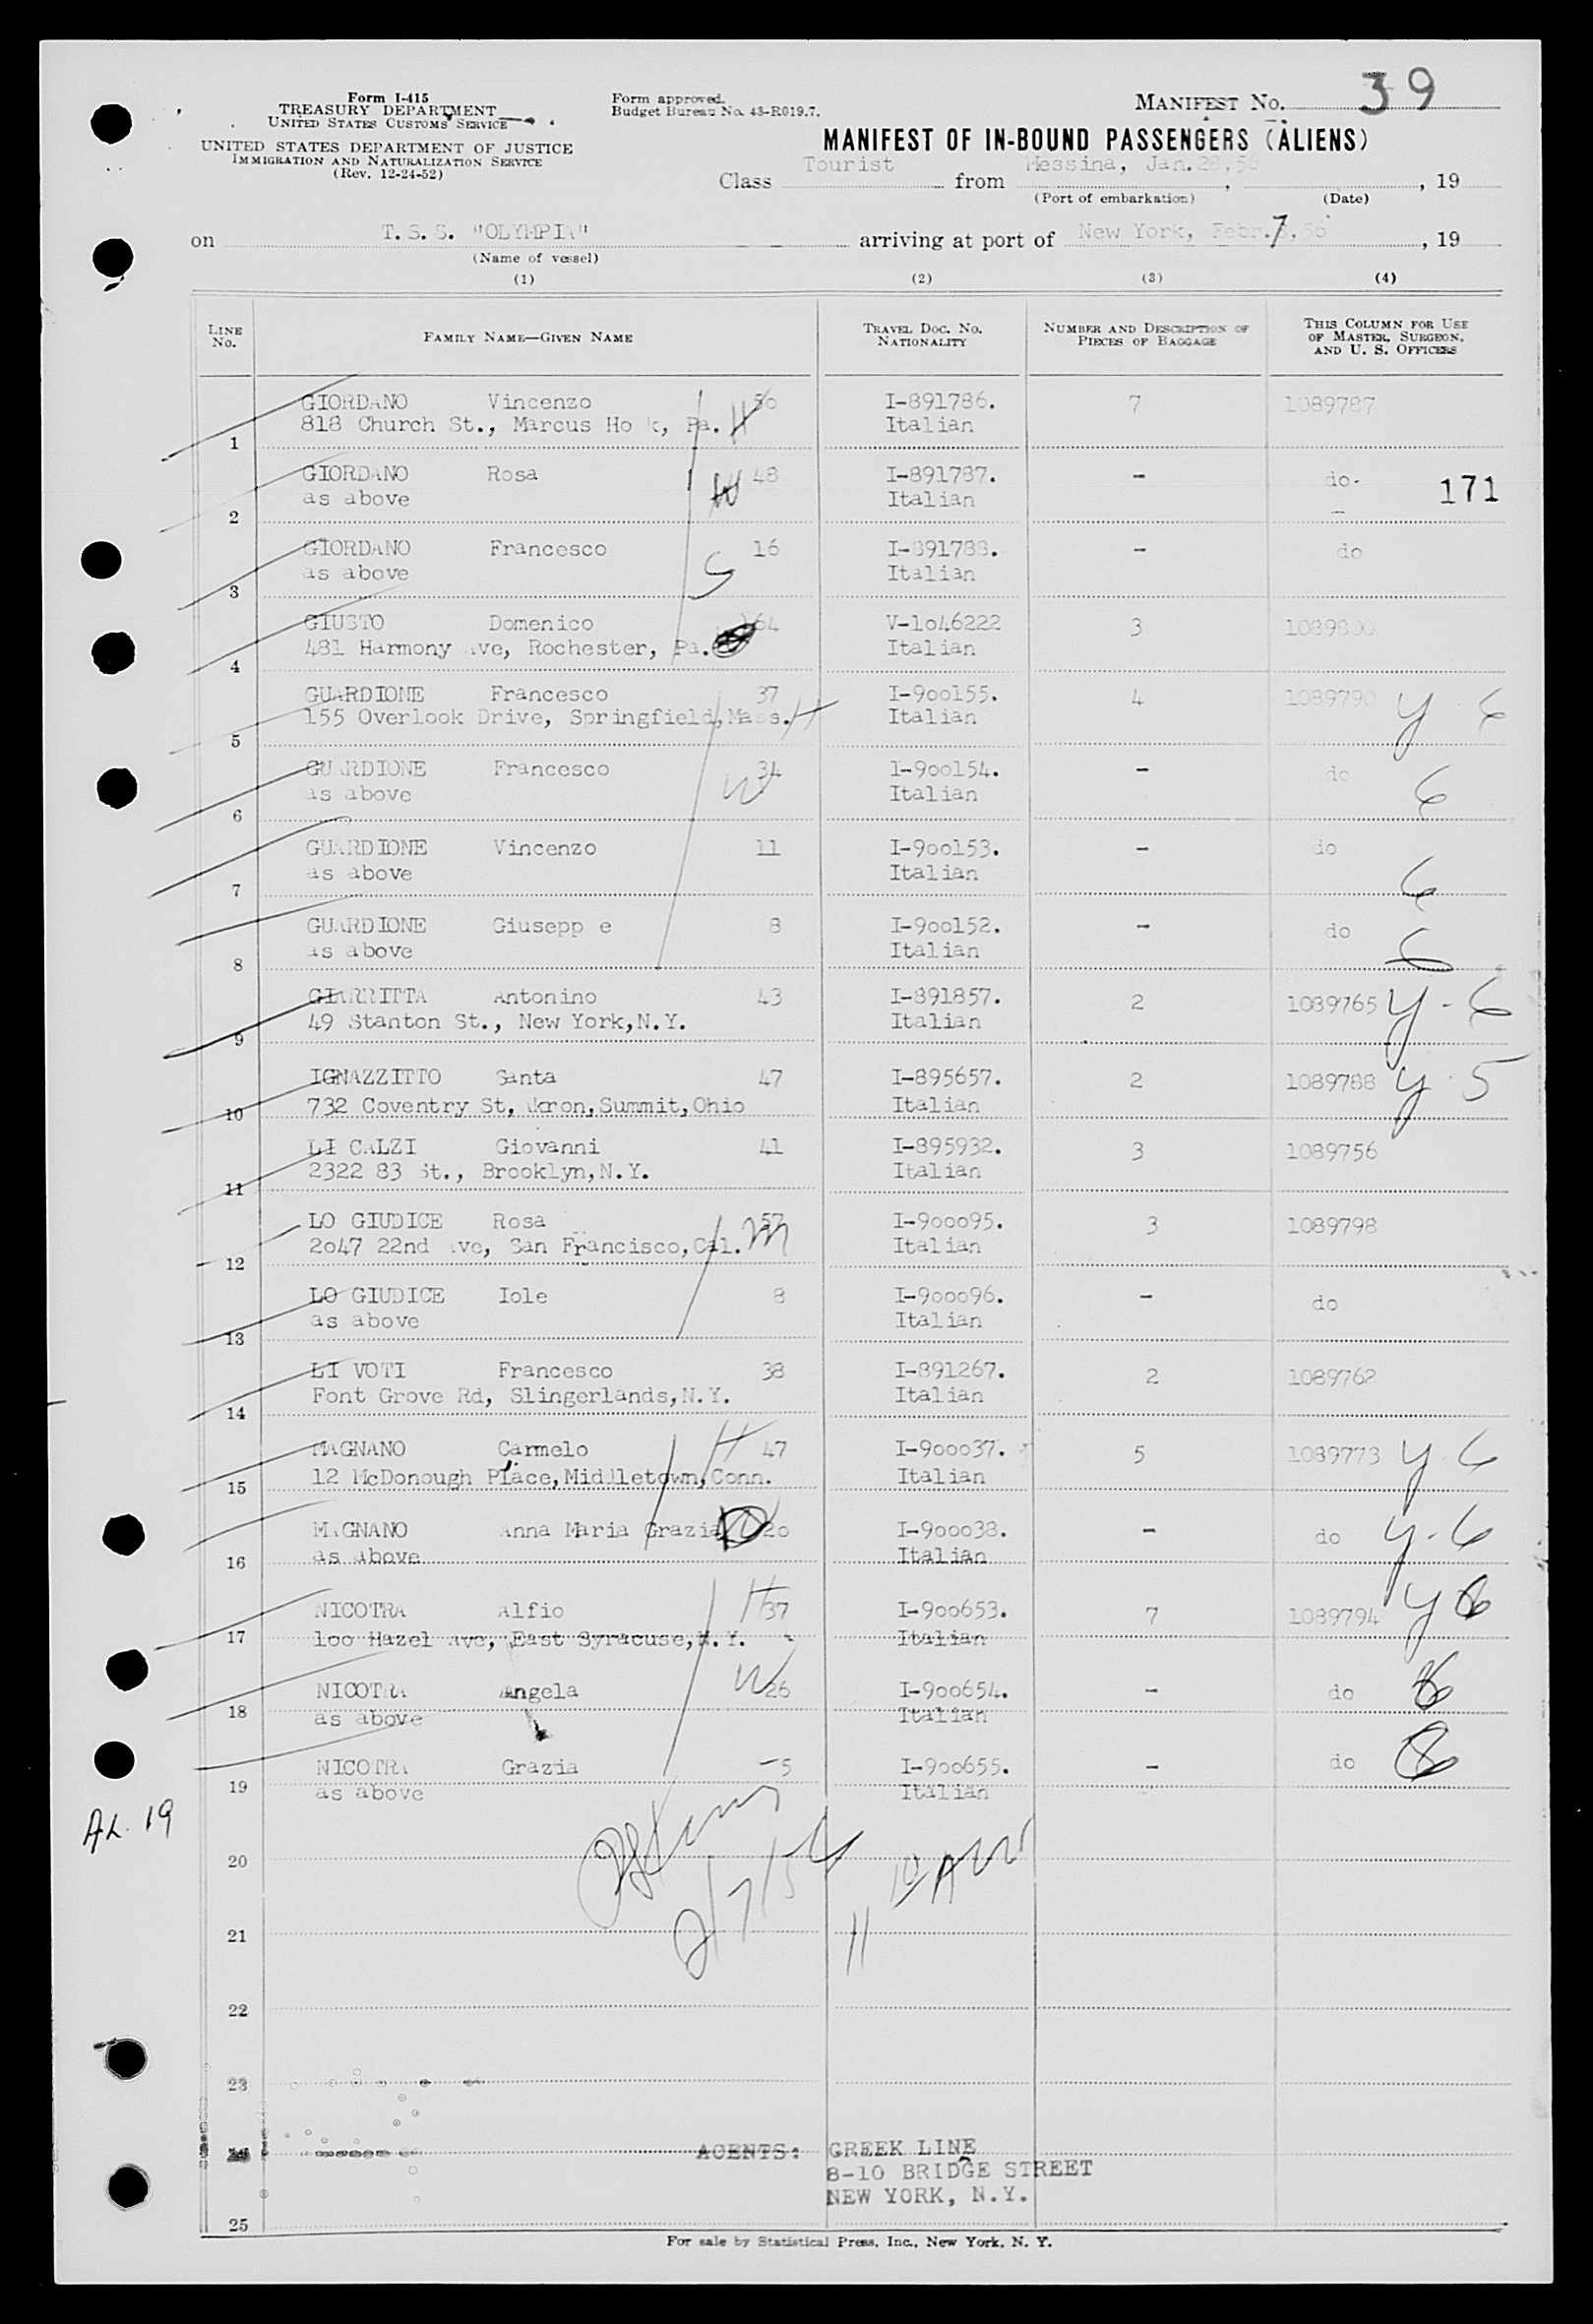 Form I-415
TREASURY DEPARTMENT
UNITED STATES CUSTOMS SERVICE
UNITED STATES DEPARTMENT OF JUSTICE
IMMIGRATION AND NATURALIZATION SERVICE
(Rev. 12-24-52)
Form approved.
Budget Bureau No. 43-R019.7.
MANIFEST No. 39
MANIFEST OF IN-BOUND PASSENGERS (ALIENS)
Class Tourist from Messina, Jan.28,56 , 19
(Port of embarkation) (Date)
on T.S.S. "OLYMPIA" arriving at port of New York, Febr.7,56 , 19
(Name of vessel)
(1) (2) (3) (4)
LINE No. FAMILY NAME—GIVEN NAME TRAVEL DOC. NO. NATIONALITY NUMBER AND DESCRIPTION OF PIECES OF BAGGAGE THIS COLUMN FOR USE OF MASTER, SURGEON, AND U. S. OFFICERS
GIORDANO Vincenzo 50 I-891786. 7 1089787
1 818 Church St., Marcus Ho k, Pa. H Italian
GIORDANO Rosa 48 I-891787. - do- 171
2 as above W Italian
GIORDANO Francesco 16 I-891788. - do
3 as above S Italian
GIUSTO Domenico 64 V-1o46222 3 1089800
4 481 Harmony Ave, Rochester, Pa. Italian
GUARDIONE Francesco 37 I-9oo155. 4 1089790 y 6
5 155 Overlook Drive, Springfield, Mass. H Italian
GUARDIONE Francesco 34 I-9oo154. - do 6
6 as above W Italian
GUARDIONE Vincenzo 11 I-9oo153. - do 6
7 as above Italian
GUARDIONE Giusepp e 8 I-9oo152. - do 6
8 as above Italian
GIARRITTA Antonino 43 I-891857. 2 1089765 y - 6
9 49 Stanton St., New York,N.Y. Italian
IGNAZZITTO Santa 47 I-895657. 2 1089788 y 5
10 732 Coventry St, Akron,Summit,Ohio Italian
LI CALZI Giovanni 41 I-895932. 3 1089756
11 2322 83 St., Brooklyn,N.Y. Italian
LO GIUDICE Rosa 57 I-9ooo95. 3 1089798
12 2o47 22nd Ave, San Francisco,Cal. M Italian
LO GIUDICE Iole 8 I-9ooo96. - do
13 as above Italian
LI VOTI Francesco 38 I-891267. 2 1089762
14 Font Grove Rd, Slingerlands,N.Y. Italian
MAGNANO Carmelo H 47 I-9ooo37. 5 1089773 y 6
15 12 McDonough Place,Middletown,Conn. Italian
MAGNANO Anna Maria Grazia 2o I-9ooo38. - do y. 6
16 as above Italian
NICOTRA Alfio H 37 I-9oo653. 7 1089794 y 6
17 1oo Hazel Ave, East Syracuse,N.Y. Italian
NICOTRA Angela W 26 I-9oo654. - do 6
18 as above Italian
NICOTRA Grazia 5 I-9oo655. - do 6
19 as above Italian
AL. 19
20
2/7/56
21 11
22
23
24 AGENTS: GREEK LINE
8-10 BRIDGE STREET
NEW YORK, N.Y.
25
For sale by Statistical Press, Inc., New York, N. Y.